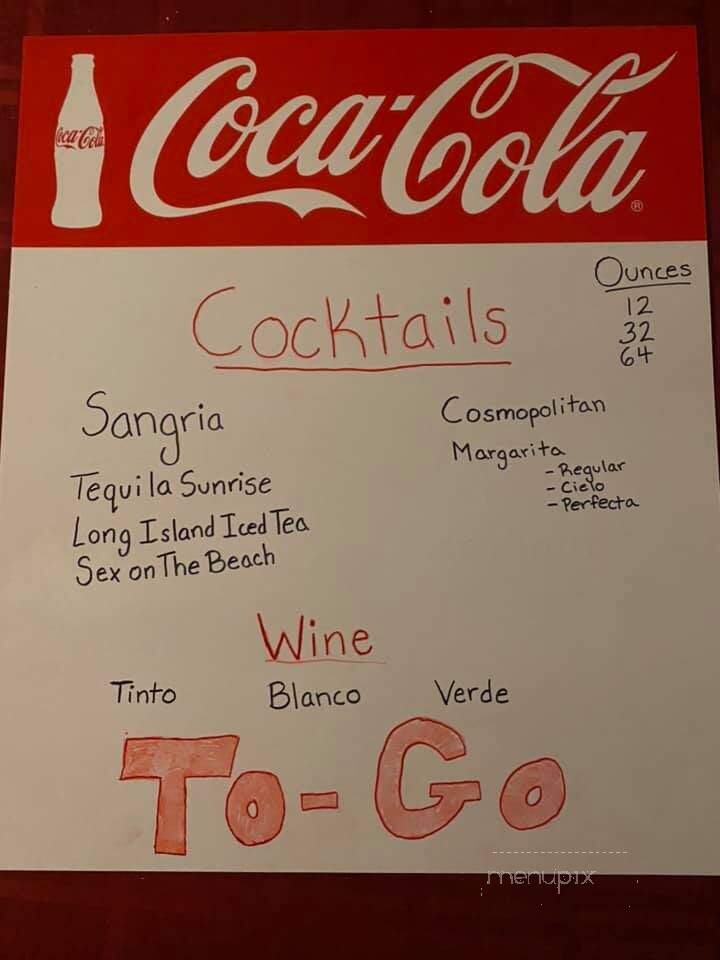 Coca-Cola
Coca-Cola®
Cocktails
Ounces
12
32
64
Sangria
Tequila Sunrise
Long Island Iced Tea
Sex on The Beach
Cosmopolitan
Margarita
- Regular
- Cielo
- Perfecta
Wine
Tinto Blanco Verde
To-Go
menupix